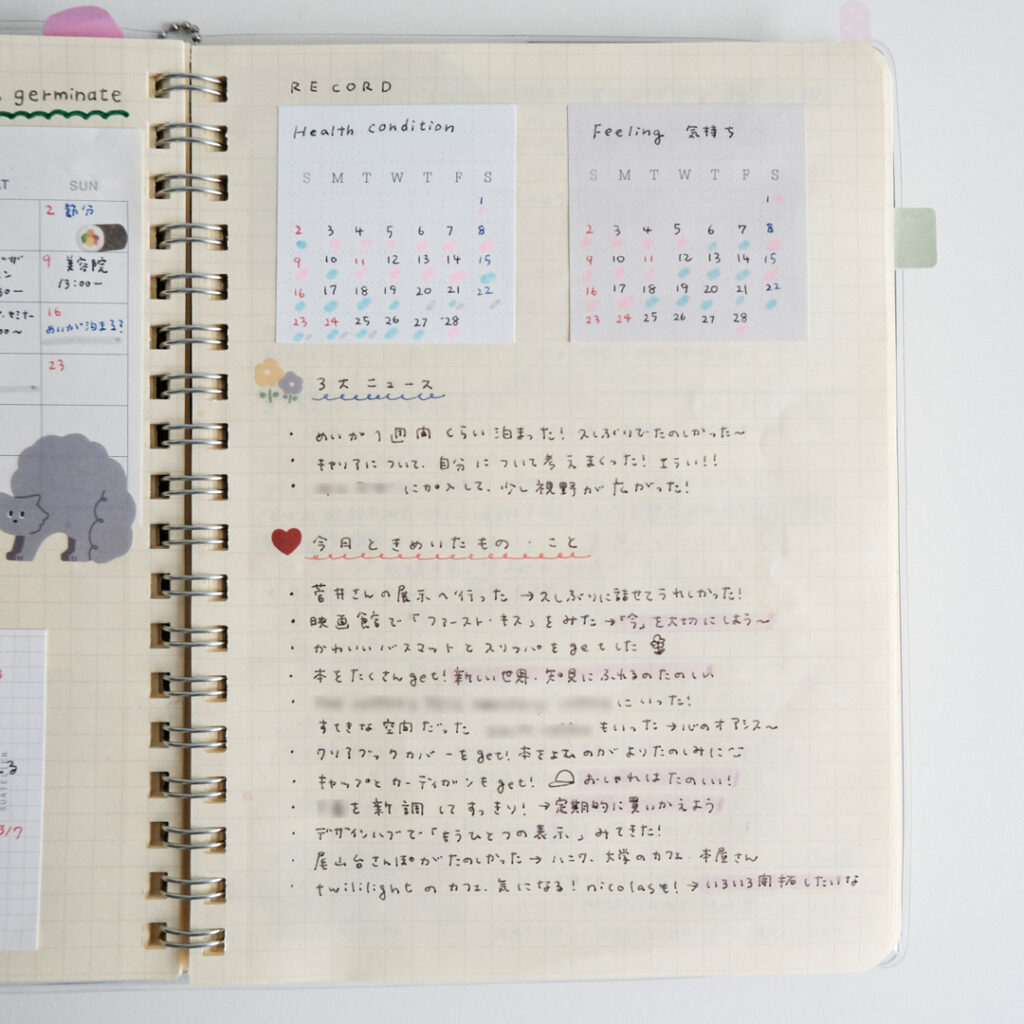 germinate
SUN
2 節分
9 美容院
13:00–
16
めいが泊まる?
23
RECORD
Health condition
S M T W T F S
1
2 3 4 5 6 7 8
9 10 11 12 13 14 15
16 17 18 19 20 21 22
23 24 25 26 27 28
Feeling 気持ち
S M T W T F S
1
2 3 4 5 6 7 8
9 10 11 12 13 14 15
16 17 18 19 20 21 22
23 24 25 26 27 28
3大ニュース
・めいが1週間くらい泊まった! 久しぶりでたのしかった〜
・キャリアについて、自分について考えまくった! エラい!!
・に加入して、少し視野が広がった!
今月ときめいたもの・こと
・菅井さんの展示へ行った→久しぶりに話せてうれしかった!
・映画館で「ファースト・キス」をみた→「今」を大切にしよう〜
・かわいいバスマットとスリッパをgetした
・本をたくさんget! 新しい世界・知見にふれるのたのしい
・にいった!
すてきな空間だった もいった→心のオアシス〜
・クリアブックカバーをget! 本をよむのがよりたのしみに
・キャップとカーディガンもget! おしゃれはたのしい!
・を新調してすっきり! →定期的に買いかえよう
・デザインハブで「もうひとつの表示」みてきた!
・尾山台さんぽがたのしかった→ハニワ、大学のカフェ・本屋さん
・twililightのカフェ、気になる! nicolasも! →いろいろ開拓したいな